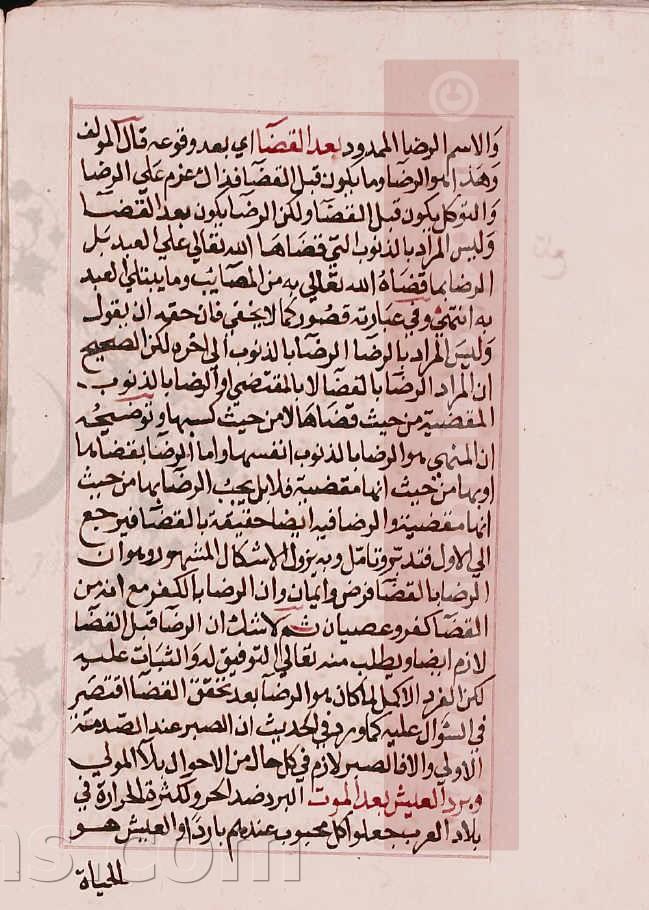 والاسم الرضا الممدود بعد القضا اي بعد وقوعه قال المولف
وهذا هو الرضا وما يكون قبل القضا فذاك عزم علي الرضا
والتوكل يكون قبل القضا ولكن الرضا يكون بعد القضا
وليس المراد بالذنوب التي قضاها الله تعالي علي العبد بل
الرضا بما قضاه الله تعالي به من المصايب وما يبتلي العبد
به انتهي وفي عبارته قصور كما لا يخفي فان حقه ان يقول
وليس المراد بالرضا الرضا بالذنوب الي اخره لكن الصحيح
ان المراد الرضا بالقضا لا بالمقتضي او الرضا بالذنوب
المقضية من حيث قضاها لا من حيث كسبها وتوضيحه
ان المنهي هو الرضا بالذنوب انفسها واما الرضا بقضاها
او بها من حيث انها مقضية فلا بل يجب الرضا بها من حيث
انها مقضية والرضا فيه ايضا حقيقة بالقضا فيرجع
الي الاول فتدبر وتامل وبه يزول الاشكال المشهور وهو ان
الرضا بالقضا فرض وايمان وان الرضا بالكفر مع انه من
القضا كفر وعصيان ثم لا شك ان الرضا قبل القضا
لازم ايضا ويطلب منه تعالي التوفيق له والثبات عليه
لكن الفرد الاكمل لما كان هو الرضا بعد تحقق القضا اقتصر
في السؤال عليه كما ورد في الحديث ان الصبر عند الصدمة
الاولي والا فالصبر لازم في كل حال من الاحوال بلا المولي
وبرد العيش بعد الموت البرد ضد الحر وكثرة الحرارة في
بلاد العرب جعلوا كل محبوب عندهم باردا والعيش هو
الحياة
ns.com